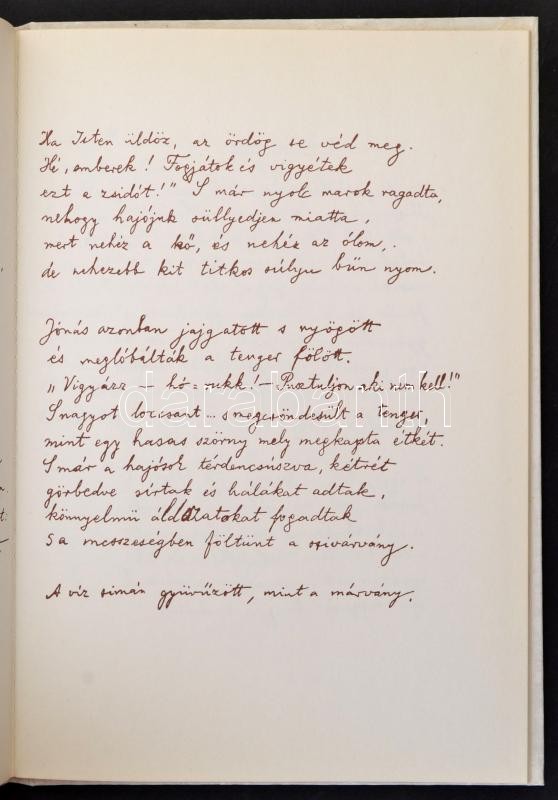 Ha Isten üldöz, az ördög se véd meg.
Hé, emberek! Fogjátok és vigyétek
ezt a zsidót!" S már nyolc marok ragadta,
nehogy hajójuk süllyedjen miatta,
mert nehéz a kő, és nehéz az ólom,
de nehezebb kit titkos súlyu bűn nyom.
Jónás azonban jajgatott s nyögött
és meglóbálták a tenger fölött.
„Vigyázz – hó-rukk! – Pusztuljon aki nem kell!"
S nagyot loccsant... s megcsöndesült a tenger,
mint egy hasas szörny mely megkapta étkét.
S már a hajósok térdencsúszva, kétrét
görbedve sírtak és hálákat adtak,
könnyelmű áldozatokat fogadtak
s a messzeségben föltünt a szivárvány.
A víz simán gyürűzött, mint a márvány.
darabanth